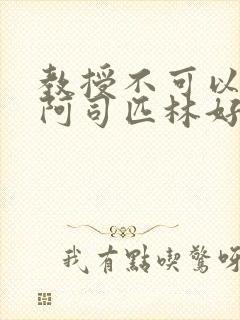 教授不可以
阿司匹林好
我有點喫驚呀